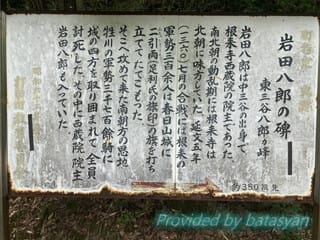 岩田八郎の碑
東三谷八郎ヶ峰
岩田八郎は中三谷の出身で、
根来寺西蔵院の院主であった。
南北朝の動乱期には根来寺は
北朝に味方していた。延文五年
(一三六〇)一月の合戦には根来の
軍勢三百余人は春日山城に
二引両(足利氏の旗印)の旗を打ち
立ててたてこもった。
そこへ攻めて来た南朝方の恩地
牲川の軍勢三千七百余騎に
城の四方を取り囲まれて全員
討死した。その中に西蔵院院主
岩田八郎も入っていた。
約350米先
Provided by batasyan